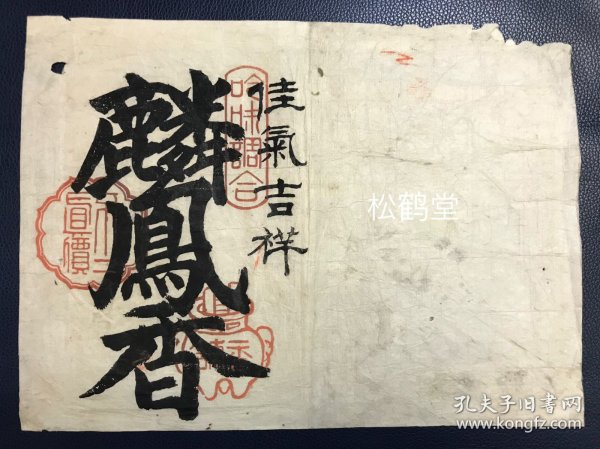 佳氣吉祥
麟鳳香
吟味調合
正價
商標
松鹤堂
孔夫子旧书网
www.kongfz.com